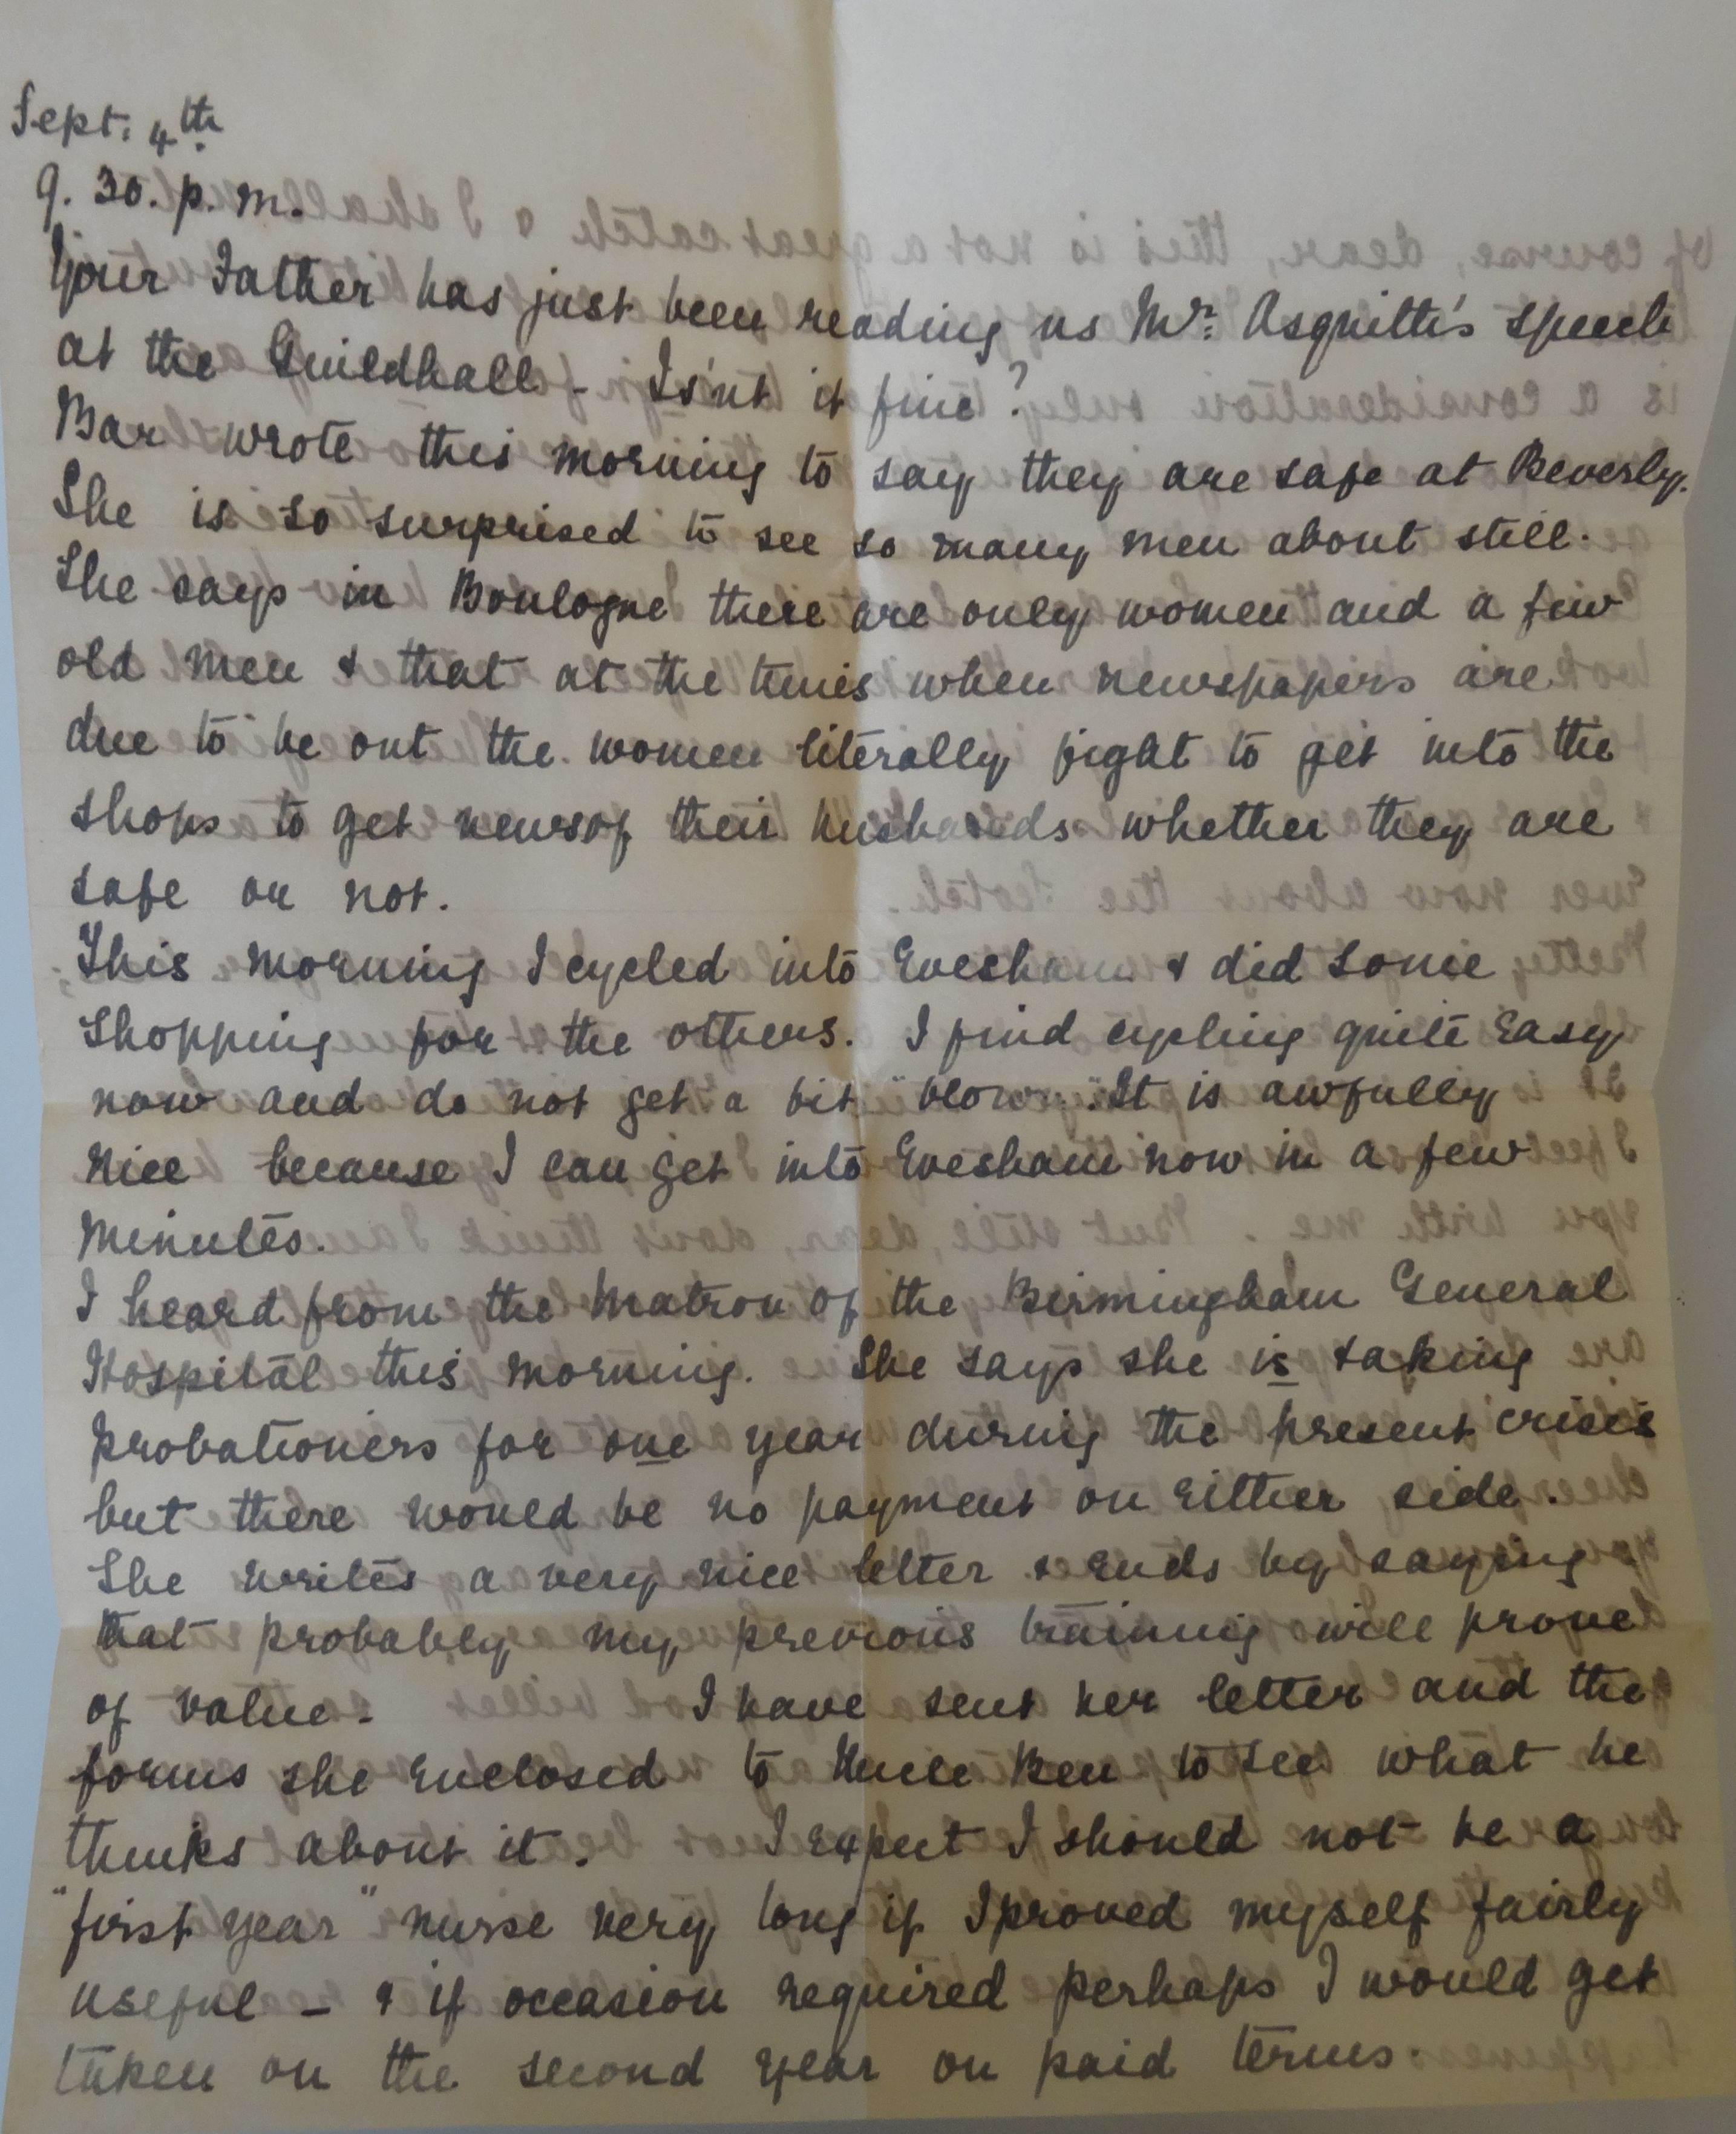 Sept. 4th
9. 30. p. m.
Your Father has just been reading us Mr. Asquith's speech
at the Guildhall - Is'nt it fine?
Bar wrote this morning to say they are safe at Beverly.
She is so surprised to see so many men about still.
She says in Boulogne there are only women and a few
old men & that at the times when newspapers are
due to be out the women literally fight to get into the
shops to get news of their husbands whether they are
safe or not.
This morning I cycled into Evesham & did some
shopping for the others. I find cycling quite easy
now and do not get a bit "blown". It is awfully
nice because I can get into Evesham now in a few
minutes.
I heard from the Matron of the Birmingham General
Hospital this morning. She says she is taking
probationers for one year during the present crisis
but there would be no payment on either side.
She writes a very nice letter & ends by saying
that probably my previous training will prove
of value - I have sent her letter and the
forms she enclosed to Uncle Ben to see what he
thinks about it. I expect I should not be a
"first year" nurse very long if I proved myself fairly
useful - & if occasion required perhaps I would get
taken on the second year on paid terms.